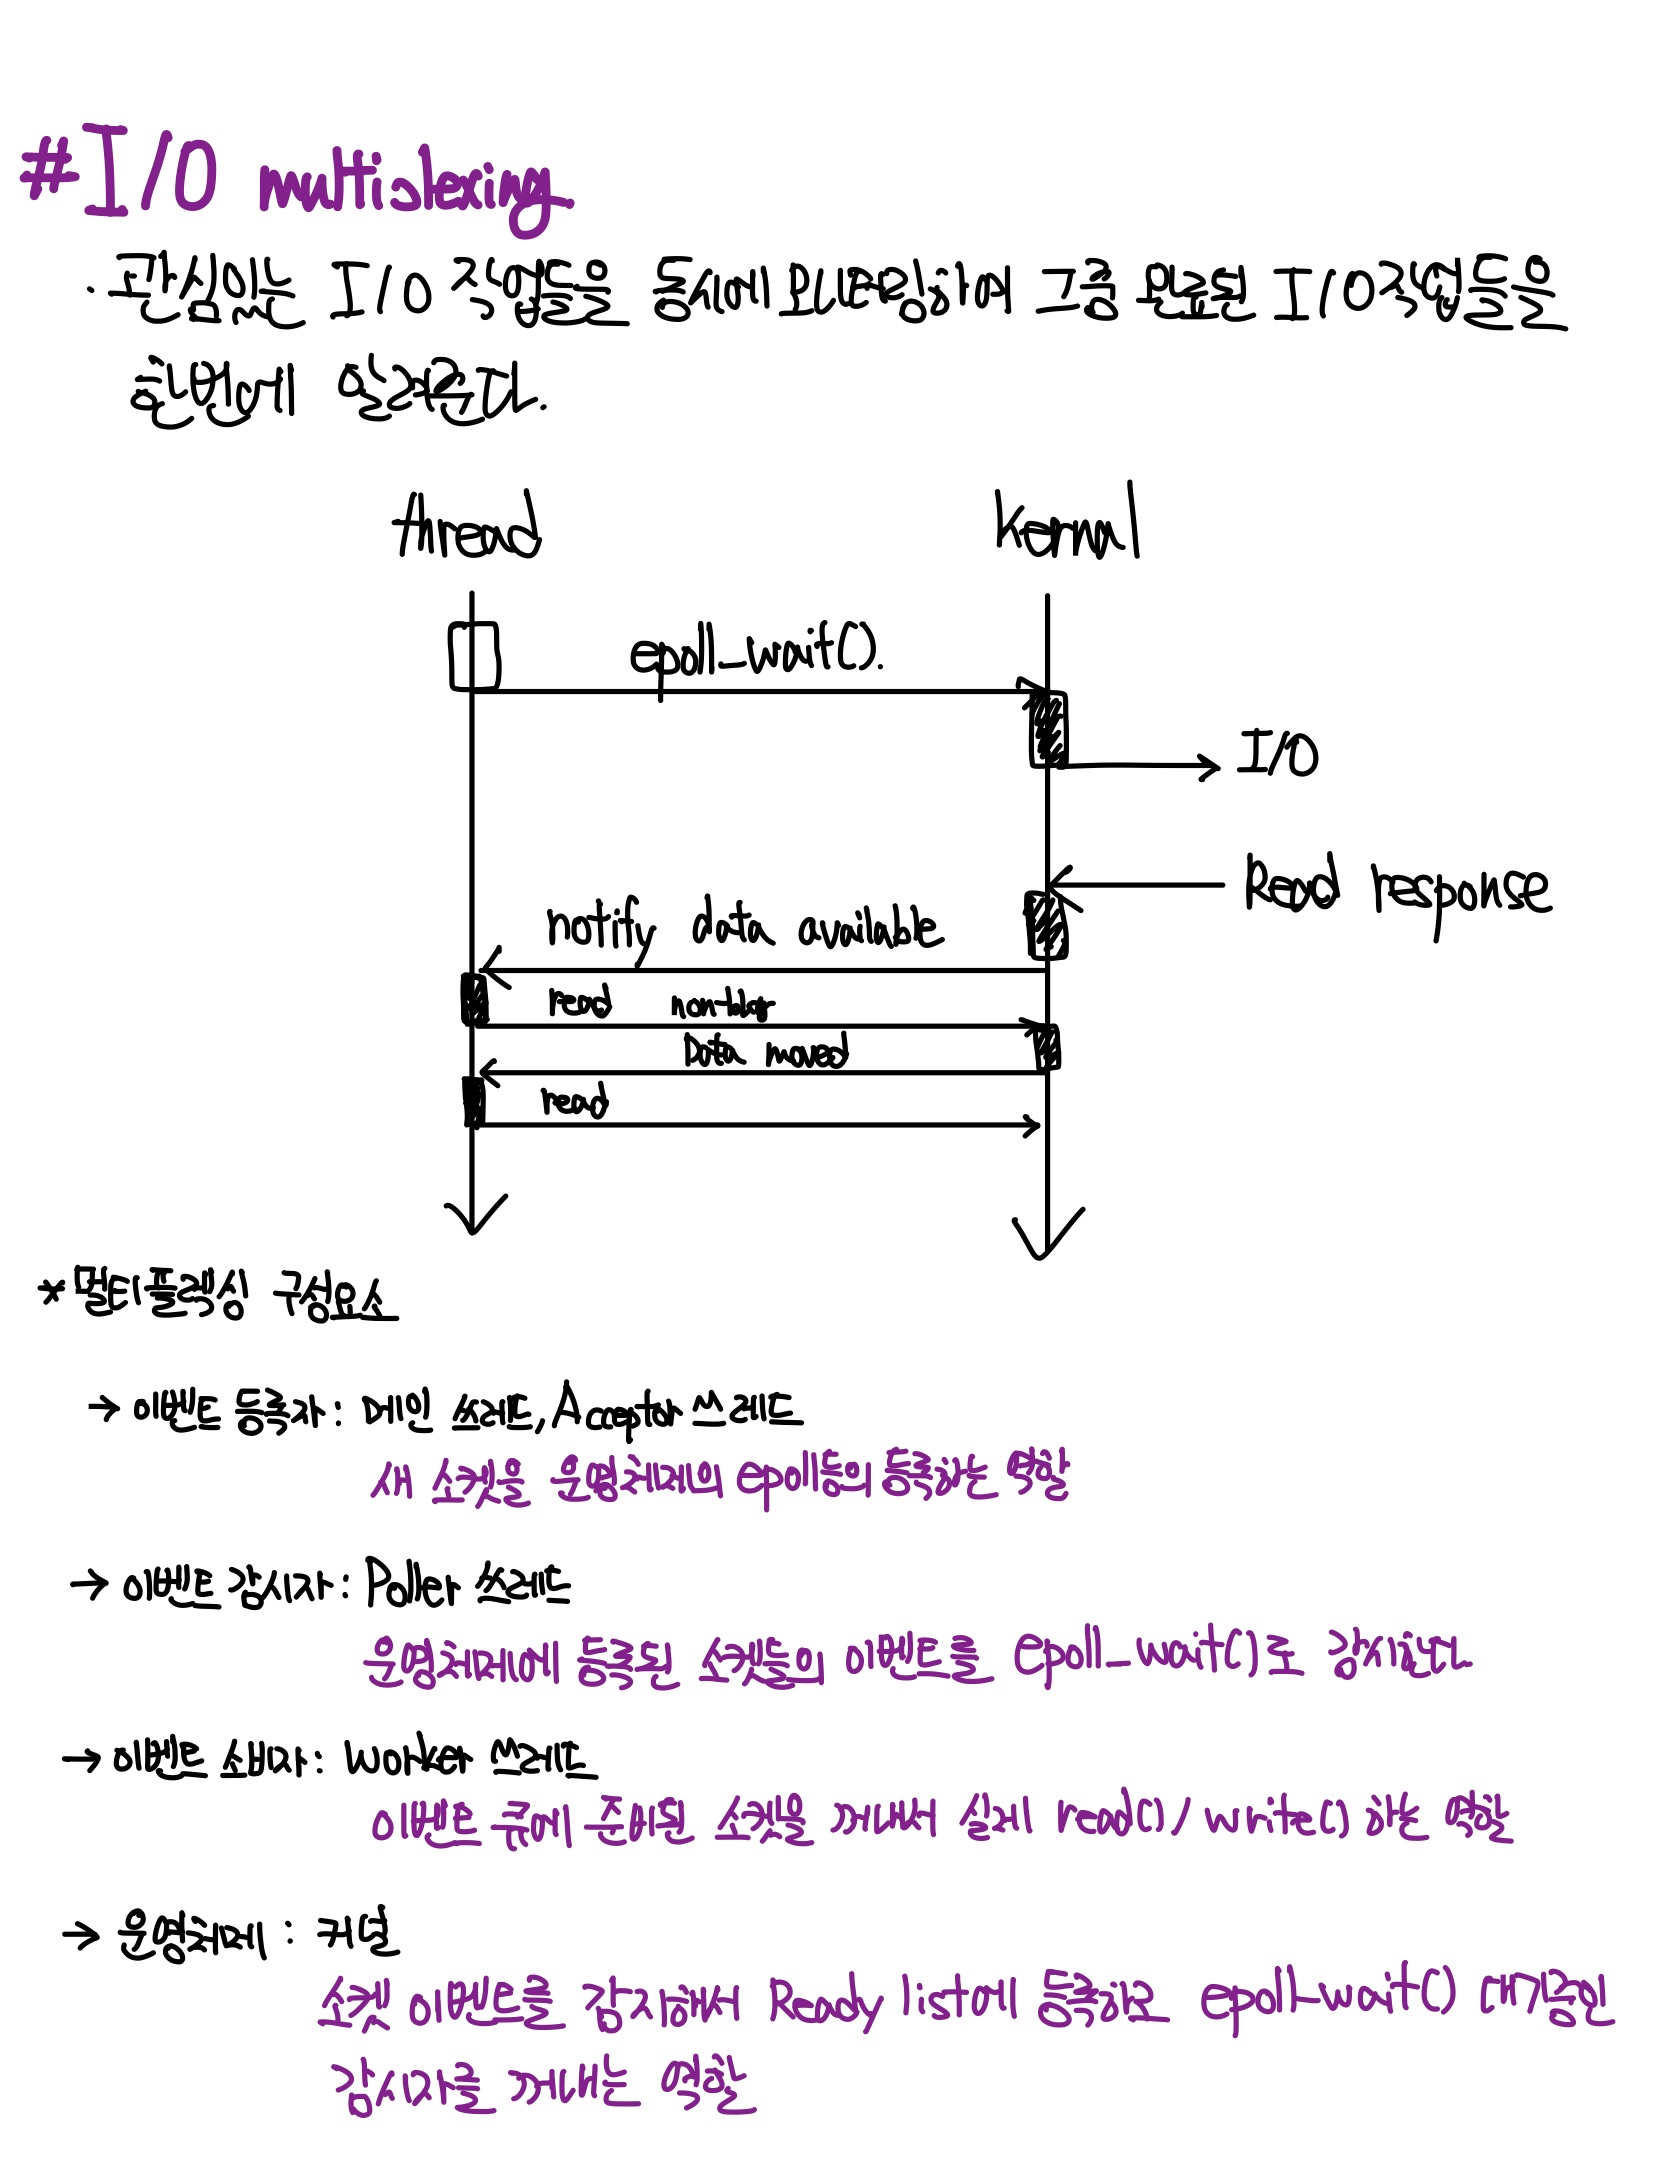 #I/O multislexing
· 관심있는 I/O 작업들을 동시에 모니터링하여 그중 완료된 I/O작업들을
한번에 알려준다.
thread kernal
epoll_wait().
I/O
Read response
notify data available
read non-block
Data moved
read
* 멀티플렉싱 구성요소
→ 이벤트 등록자 : 메인 쓰레드, Acceptor 쓰레드
새 소켓을 운영체제의 epoll등의 등록하는 역할
→ 이벤트 감시자 : Poller 쓰레드
운영체제에 등록된 소켓들의 이벤트를 epoll_wait()로 감시한다
→ 이벤트 소비자 : worker 쓰레드
이벤트 큐에 준비된 소켓을 꺼내서 실제 read() / write() 하는 역할
→ 운영체제 : 커널
소켓 이벤트를 감지해서 Ready list에 등록하고 epoll_wait() 대기중인
감시자를 꺼내는 역할